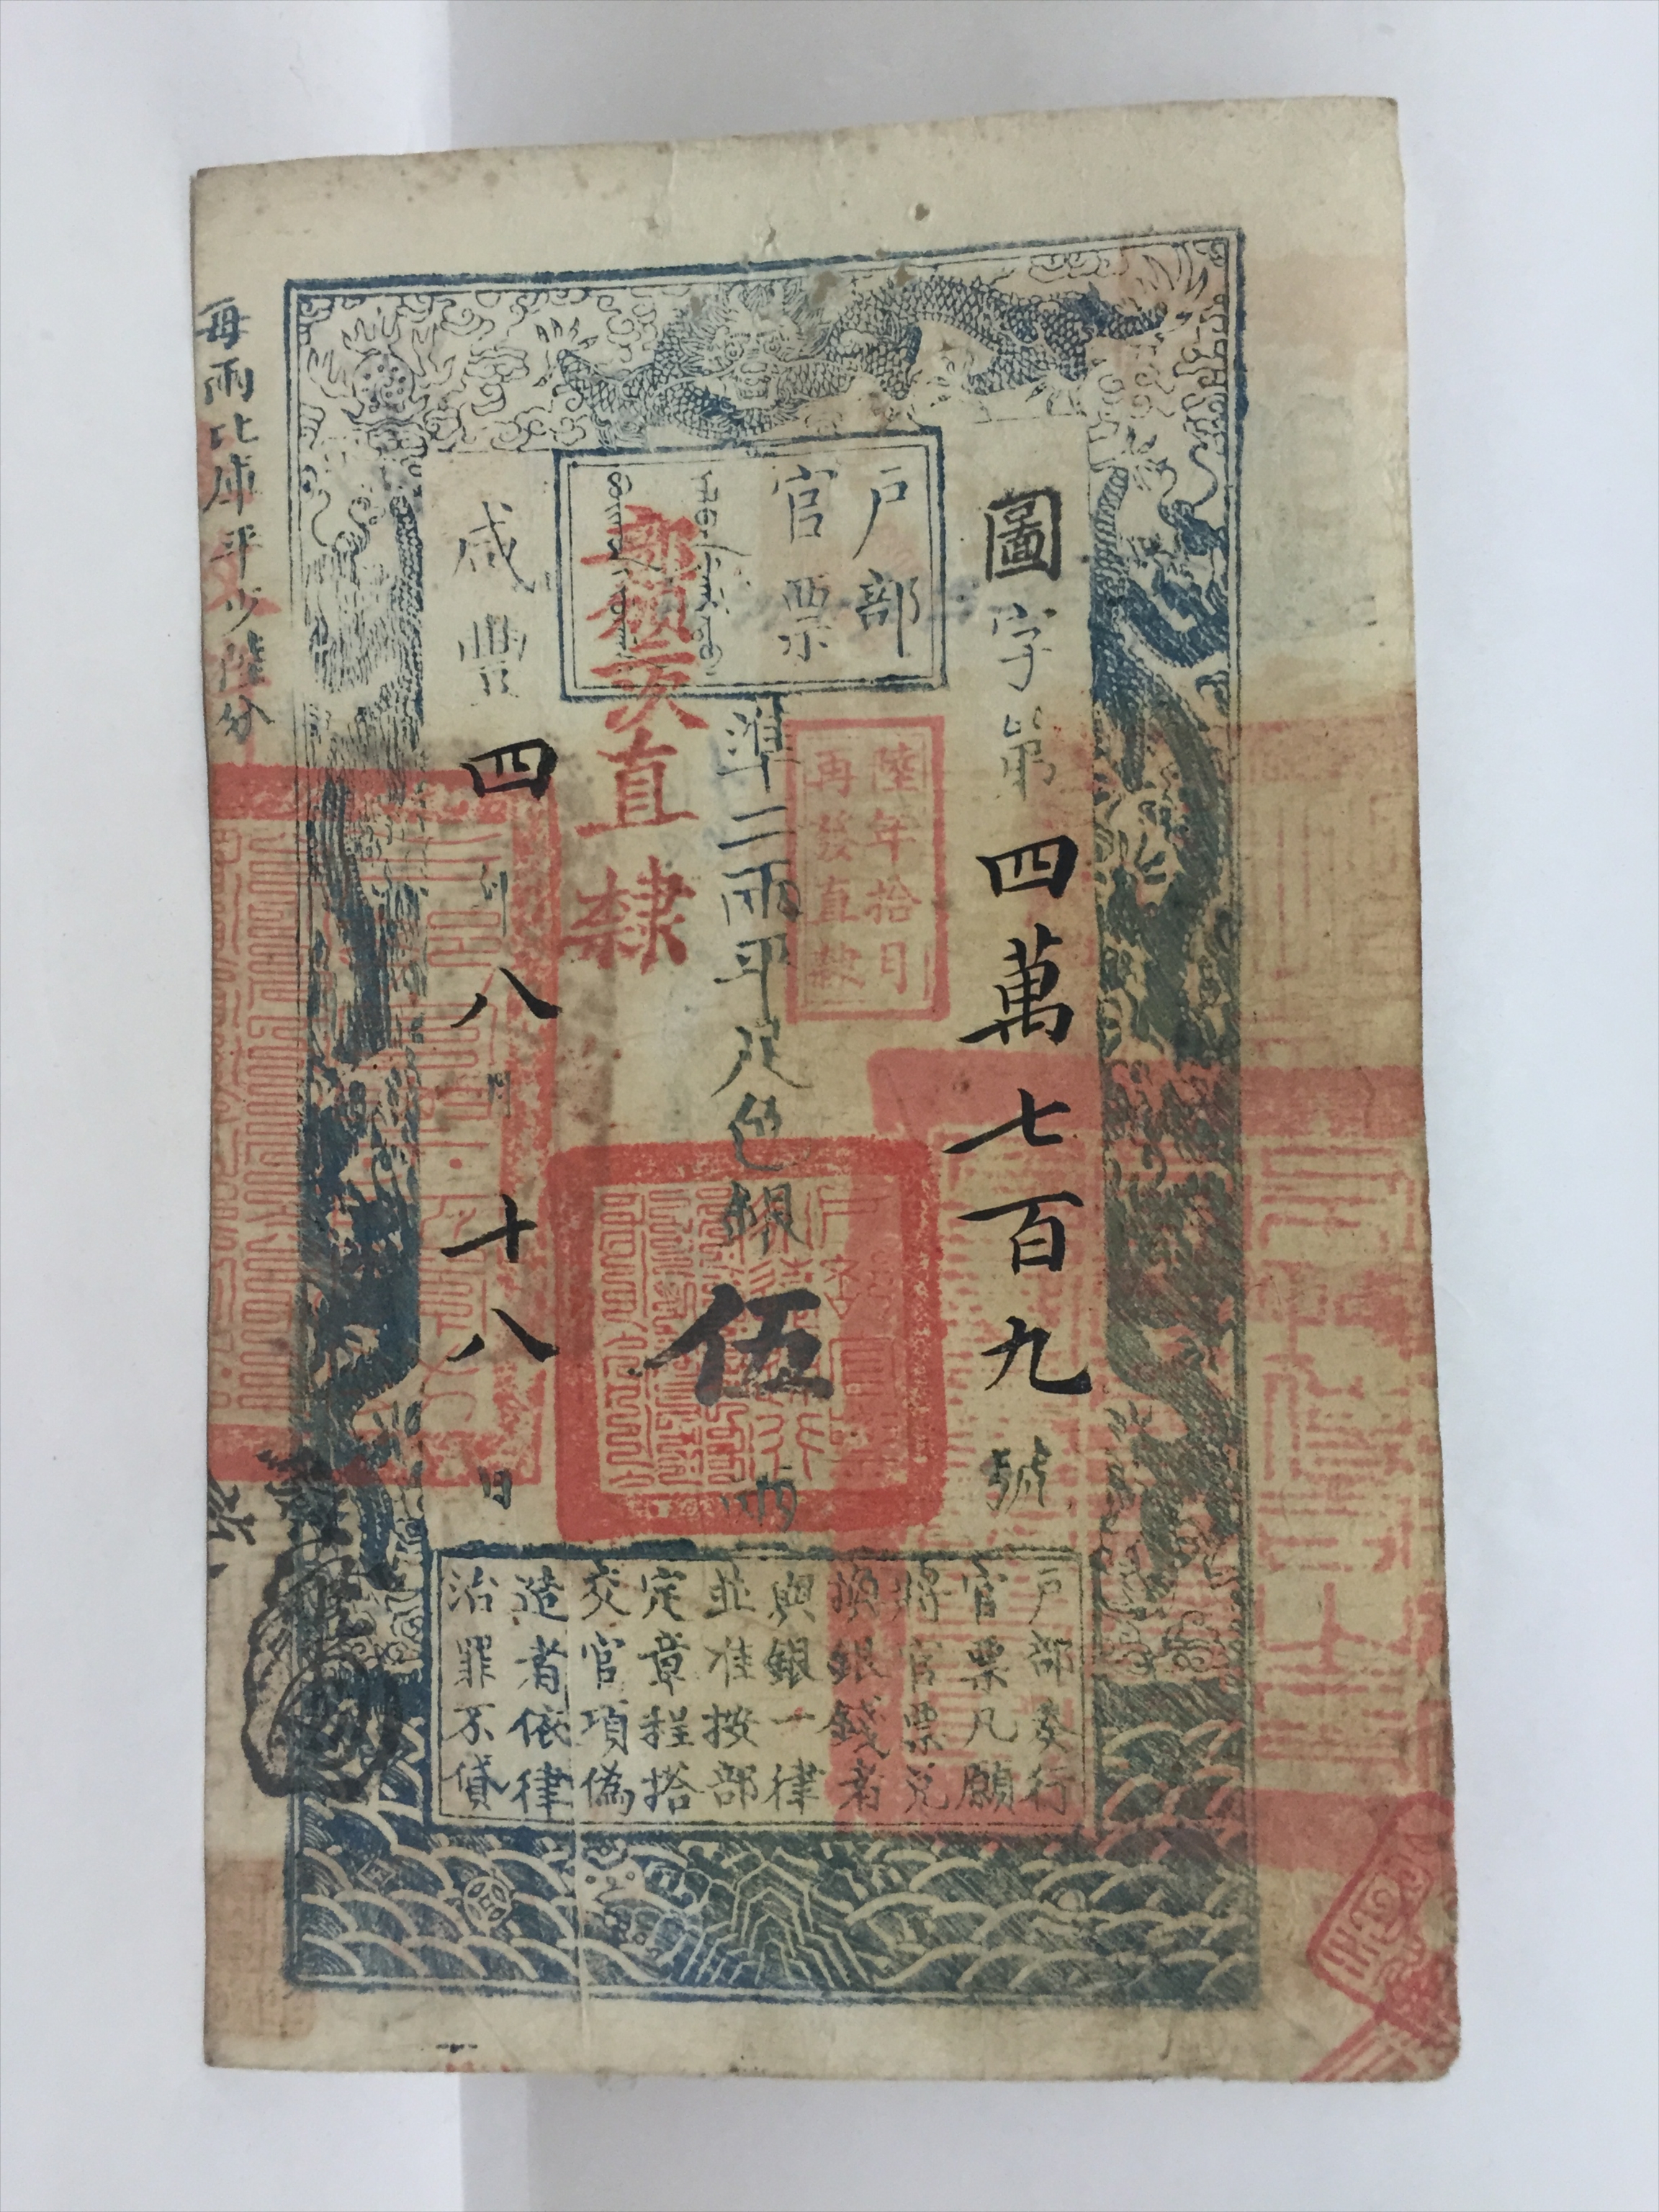 圖字第四萬七百九號
戶部
官票
陸年拾月
再發直隸
準二兩平足色銀伍兩
部頒次直隸
咸豐四年八月十八日
戶部奏行
官票凡願
將官票兌
換銀錢者
與銀一律
並准按部
定章程搭
交官項偽
造者依律
治罪不貸
每兩比庫平少陸分